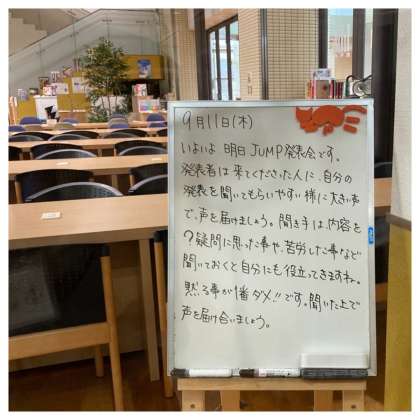 9月11日(木)
いよいよ 明日 JUMP発表会です。
発表者は 来てくださった人に、自分の
発表を聞いてもらいやすい様に大きい声
で、声を届けましょう。聞き手は、内容を
?疑問に思った事や、苦労した事など
聞いておくと自分にも役立ってきますね。
黙る事が1番ダメ!!です。聞いた上で
声を届け合いましょう。